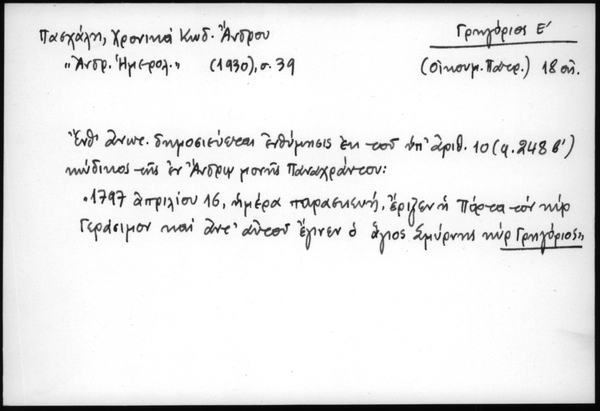 Πασχάλη, Χρονικά Κωδ. Ἄνδρου
Γρηγόριος Ε'
"Ἀνδρ. Ἡμερολ." (1930), σ. 39
(Οἰκουμ. Πατρ.) 18 αἰ.
Ἔνθ' ἀνωτ. δημοσιεύεται ἐνθύμησις ἐκ τοῦ ὑπ' ἀριθ. 10 (φ. 248 β')
κώδικος τῆς ἐν Ἄνδρῳ μονῆς Παναχράντου:
"1797 ἀπριλίου 16, ἡμέρα παρασκευή, ἔριξεν ἡ Πόρτα τόν κύρ
Γεράσιμον καί ἀντ' αὐτοῦ ἔγινεν ὁ ἅγιος Σμύρνης κύρ Γρηγόριος"